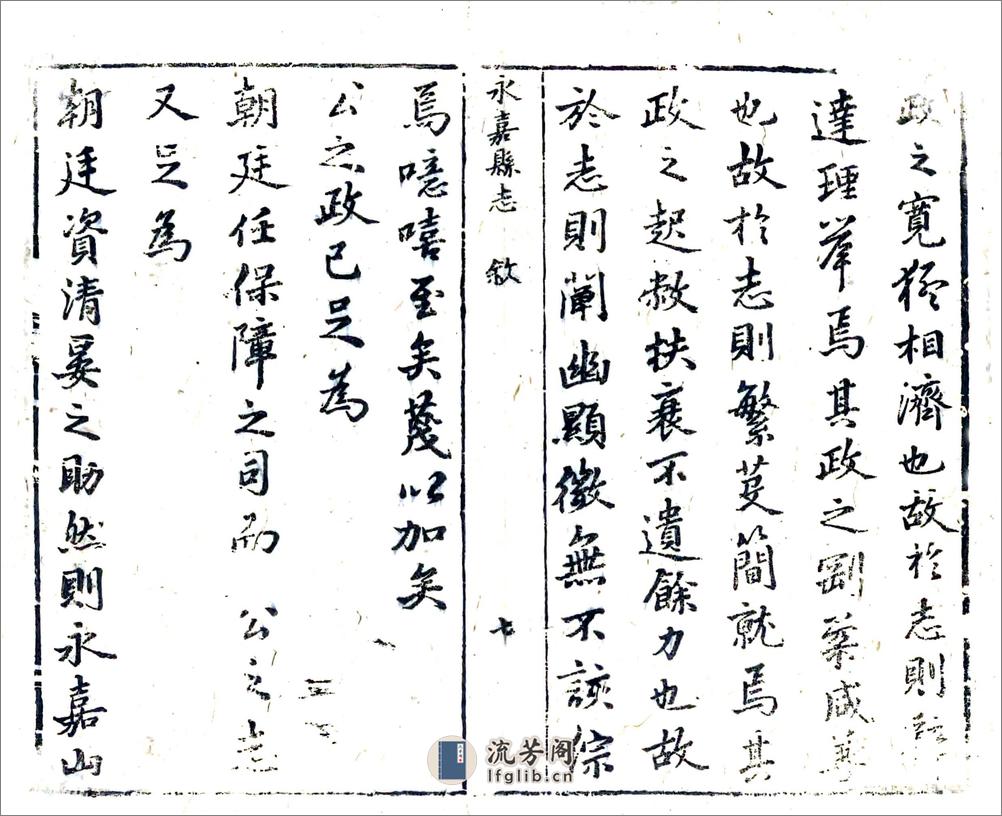 政之寬猛相濟也故於志則
達理舉焉其政之剛柔咸
也故於志則繁芟簡就焉其
政之起敝扶衰不遺餘力也故
於志則闡幽顯微無不該綜
永嘉縣志 敘 七
焉噫嘻至矣蔑以加矣
公之政已足為
朝廷任保障之司而 公之志
又足為
朝廷資清晏之助然則永嘉山
流芳阁
lfglib.cn